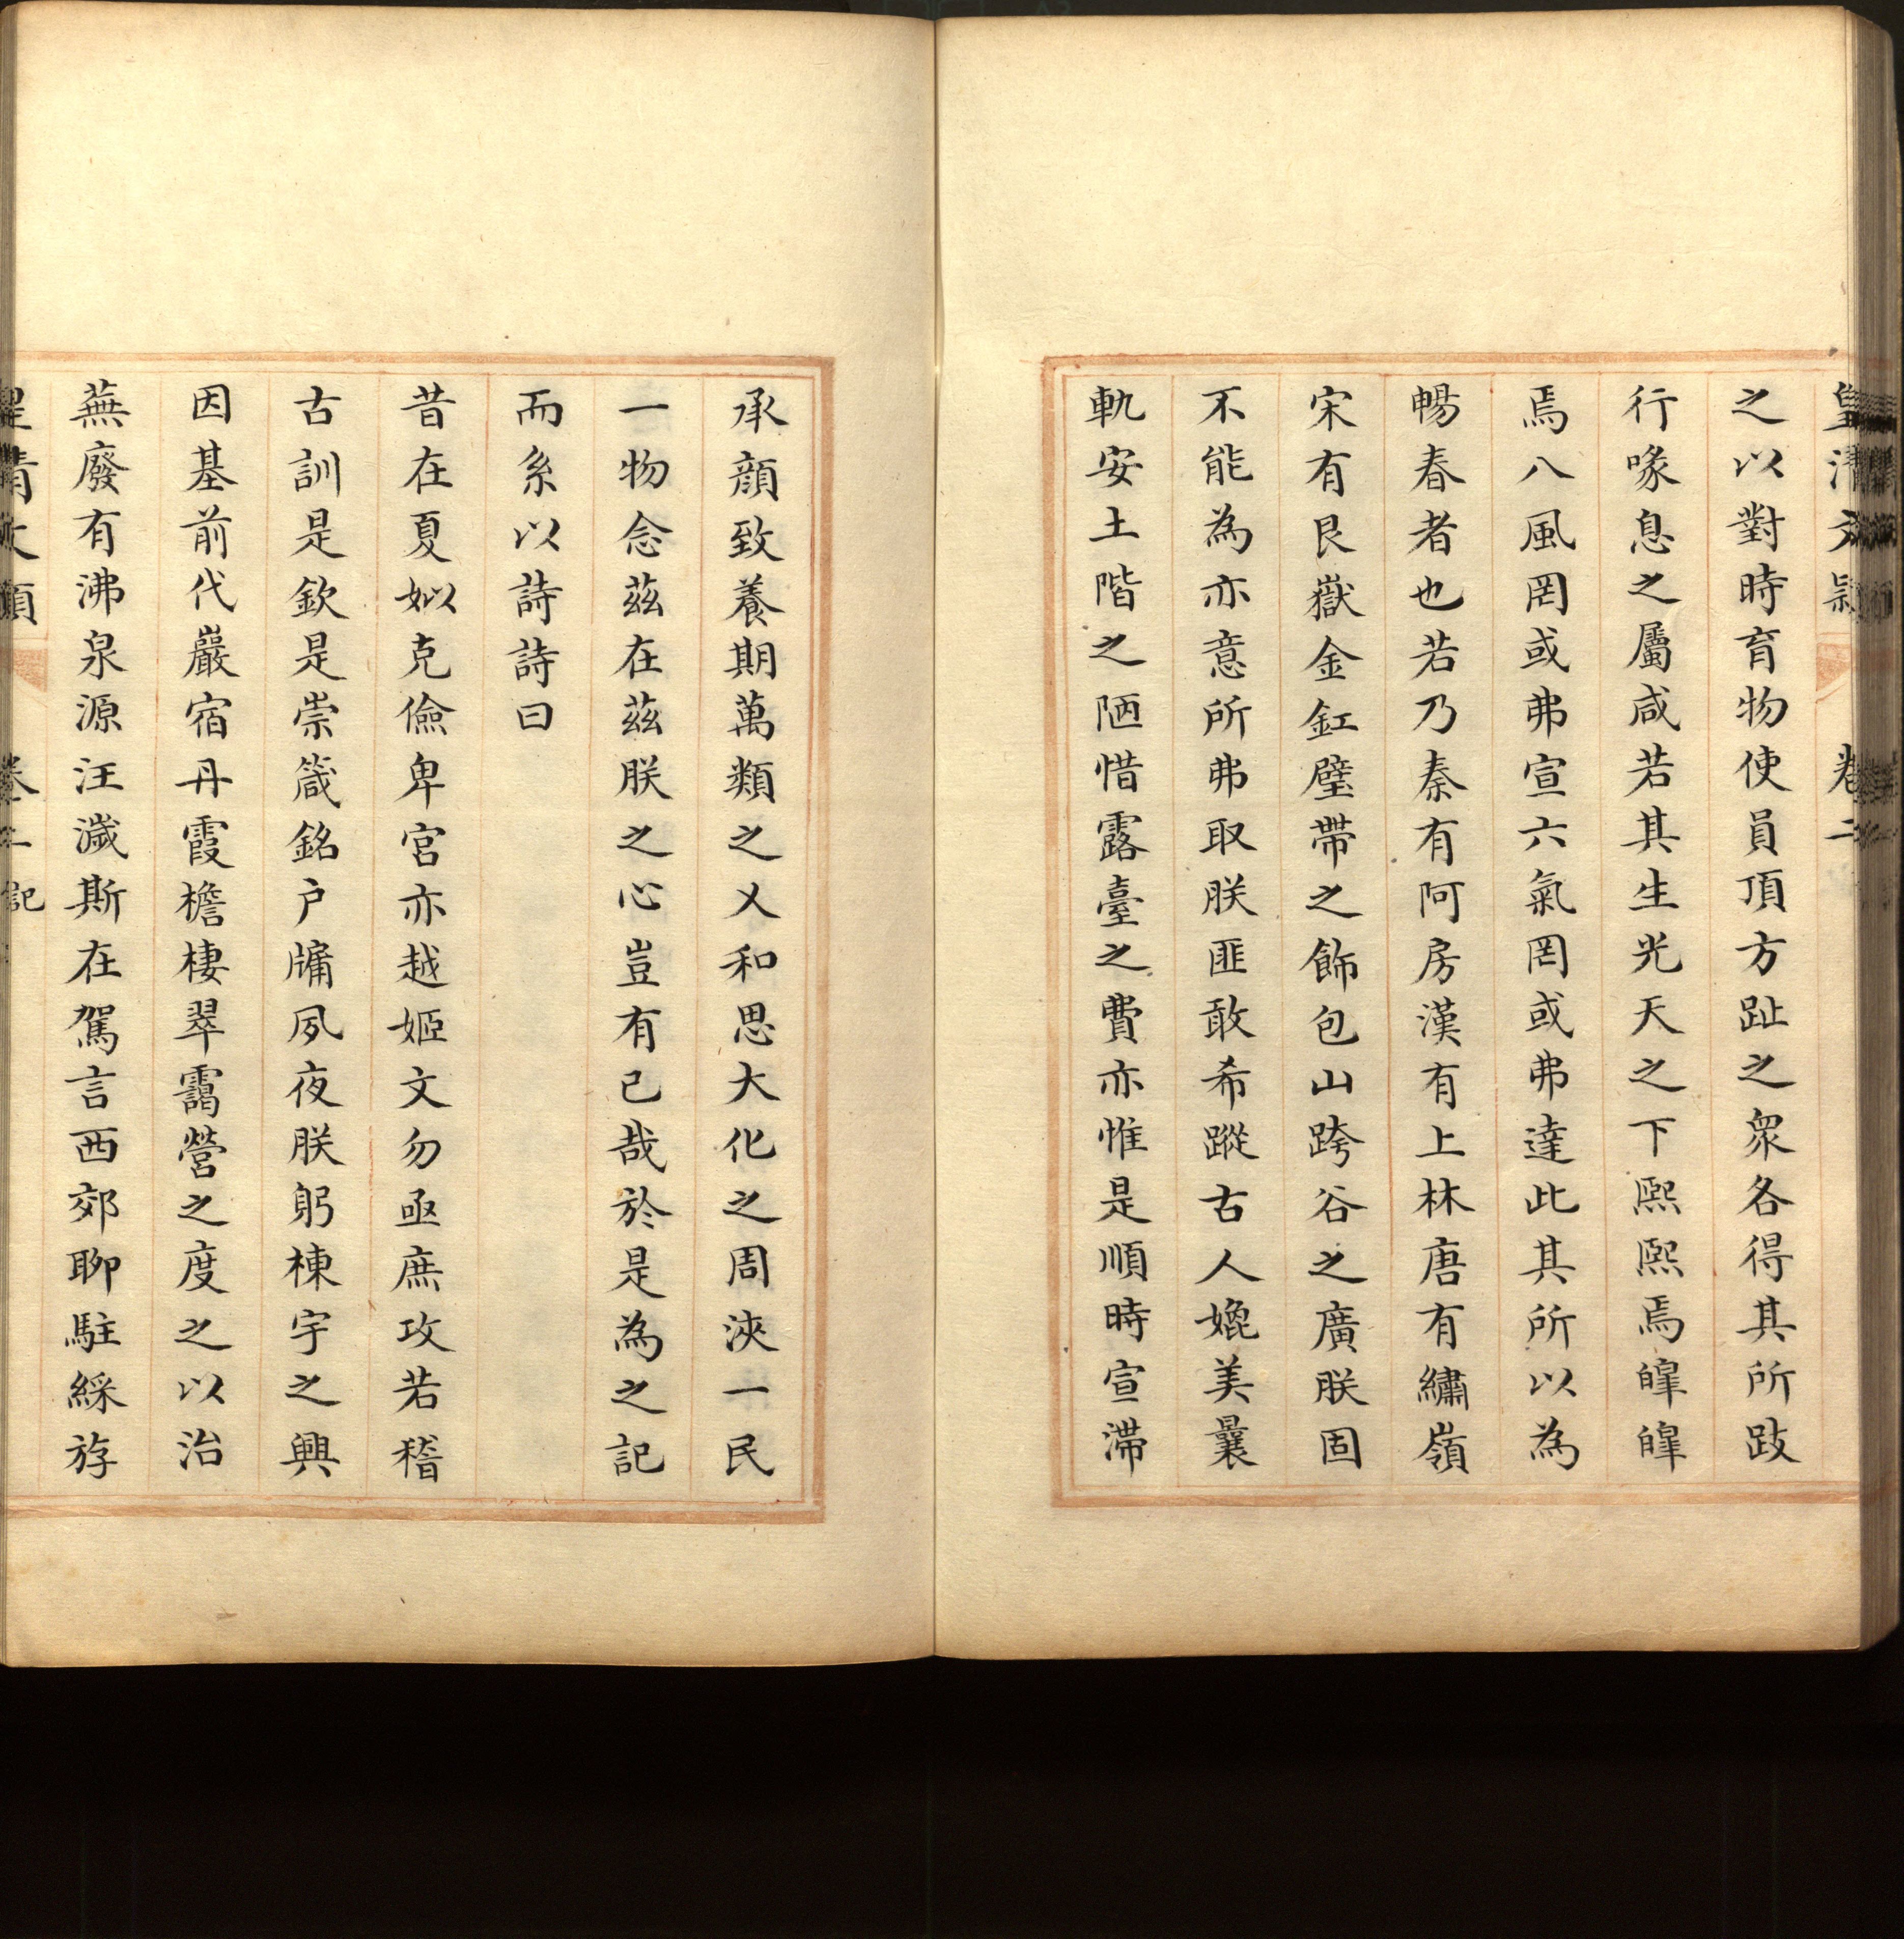 皇清文穎 卷二
之以對時育物使員頂方趾之衆各得其所跂
行喙息之屬咸若其生光天之下熙熙焉皥皥
焉八風罔或弗宣六氣罔或弗達此其所以為
暢春者也若乃秦有阿房漢有上林唐有繡嶺
宋有艮嶽金釭璧帶之飾包山跨谷之廣朕固
不能為亦意所弗取朕匪敢希蹤古人媲美曩
軌安土階之陋惜露臺之費亦惟是順時宣滯
承顔致養期萬類之乂和思大化之周浹一民
一物念茲在茲朕之心豈有已哉於是為之記
而系以詩詩曰
昔在夏姒克儉卑宮亦越姬文勿亟庶攻若稽
古訓是欽是崇箴銘户牗夙夜朕躬棟宇之興
因基前代巖宿丹霞檐棲翠靄營之度之以治
蕪廢有沸泉源汪濊斯在駕言西郊聊駐綵斿
皇清文穎 卷二 記